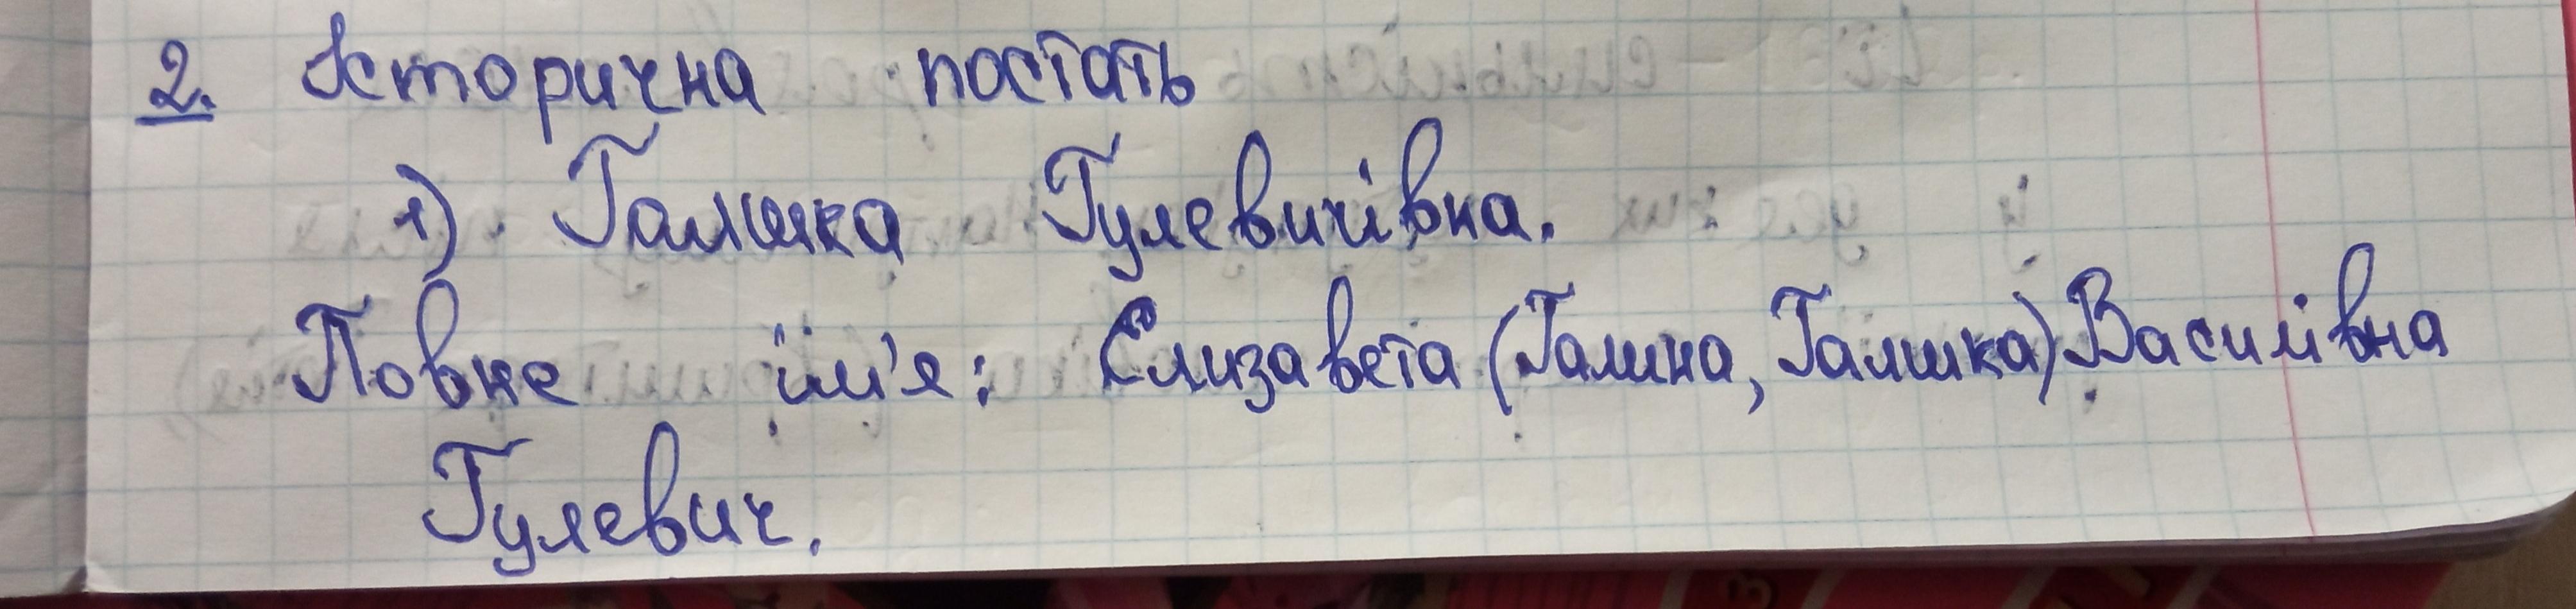 2. Історична постать
1) Галшка Гулевичівна.
Повне їм'я: Єлизавета (Галина, Галшка) Василівна
Гулевич.